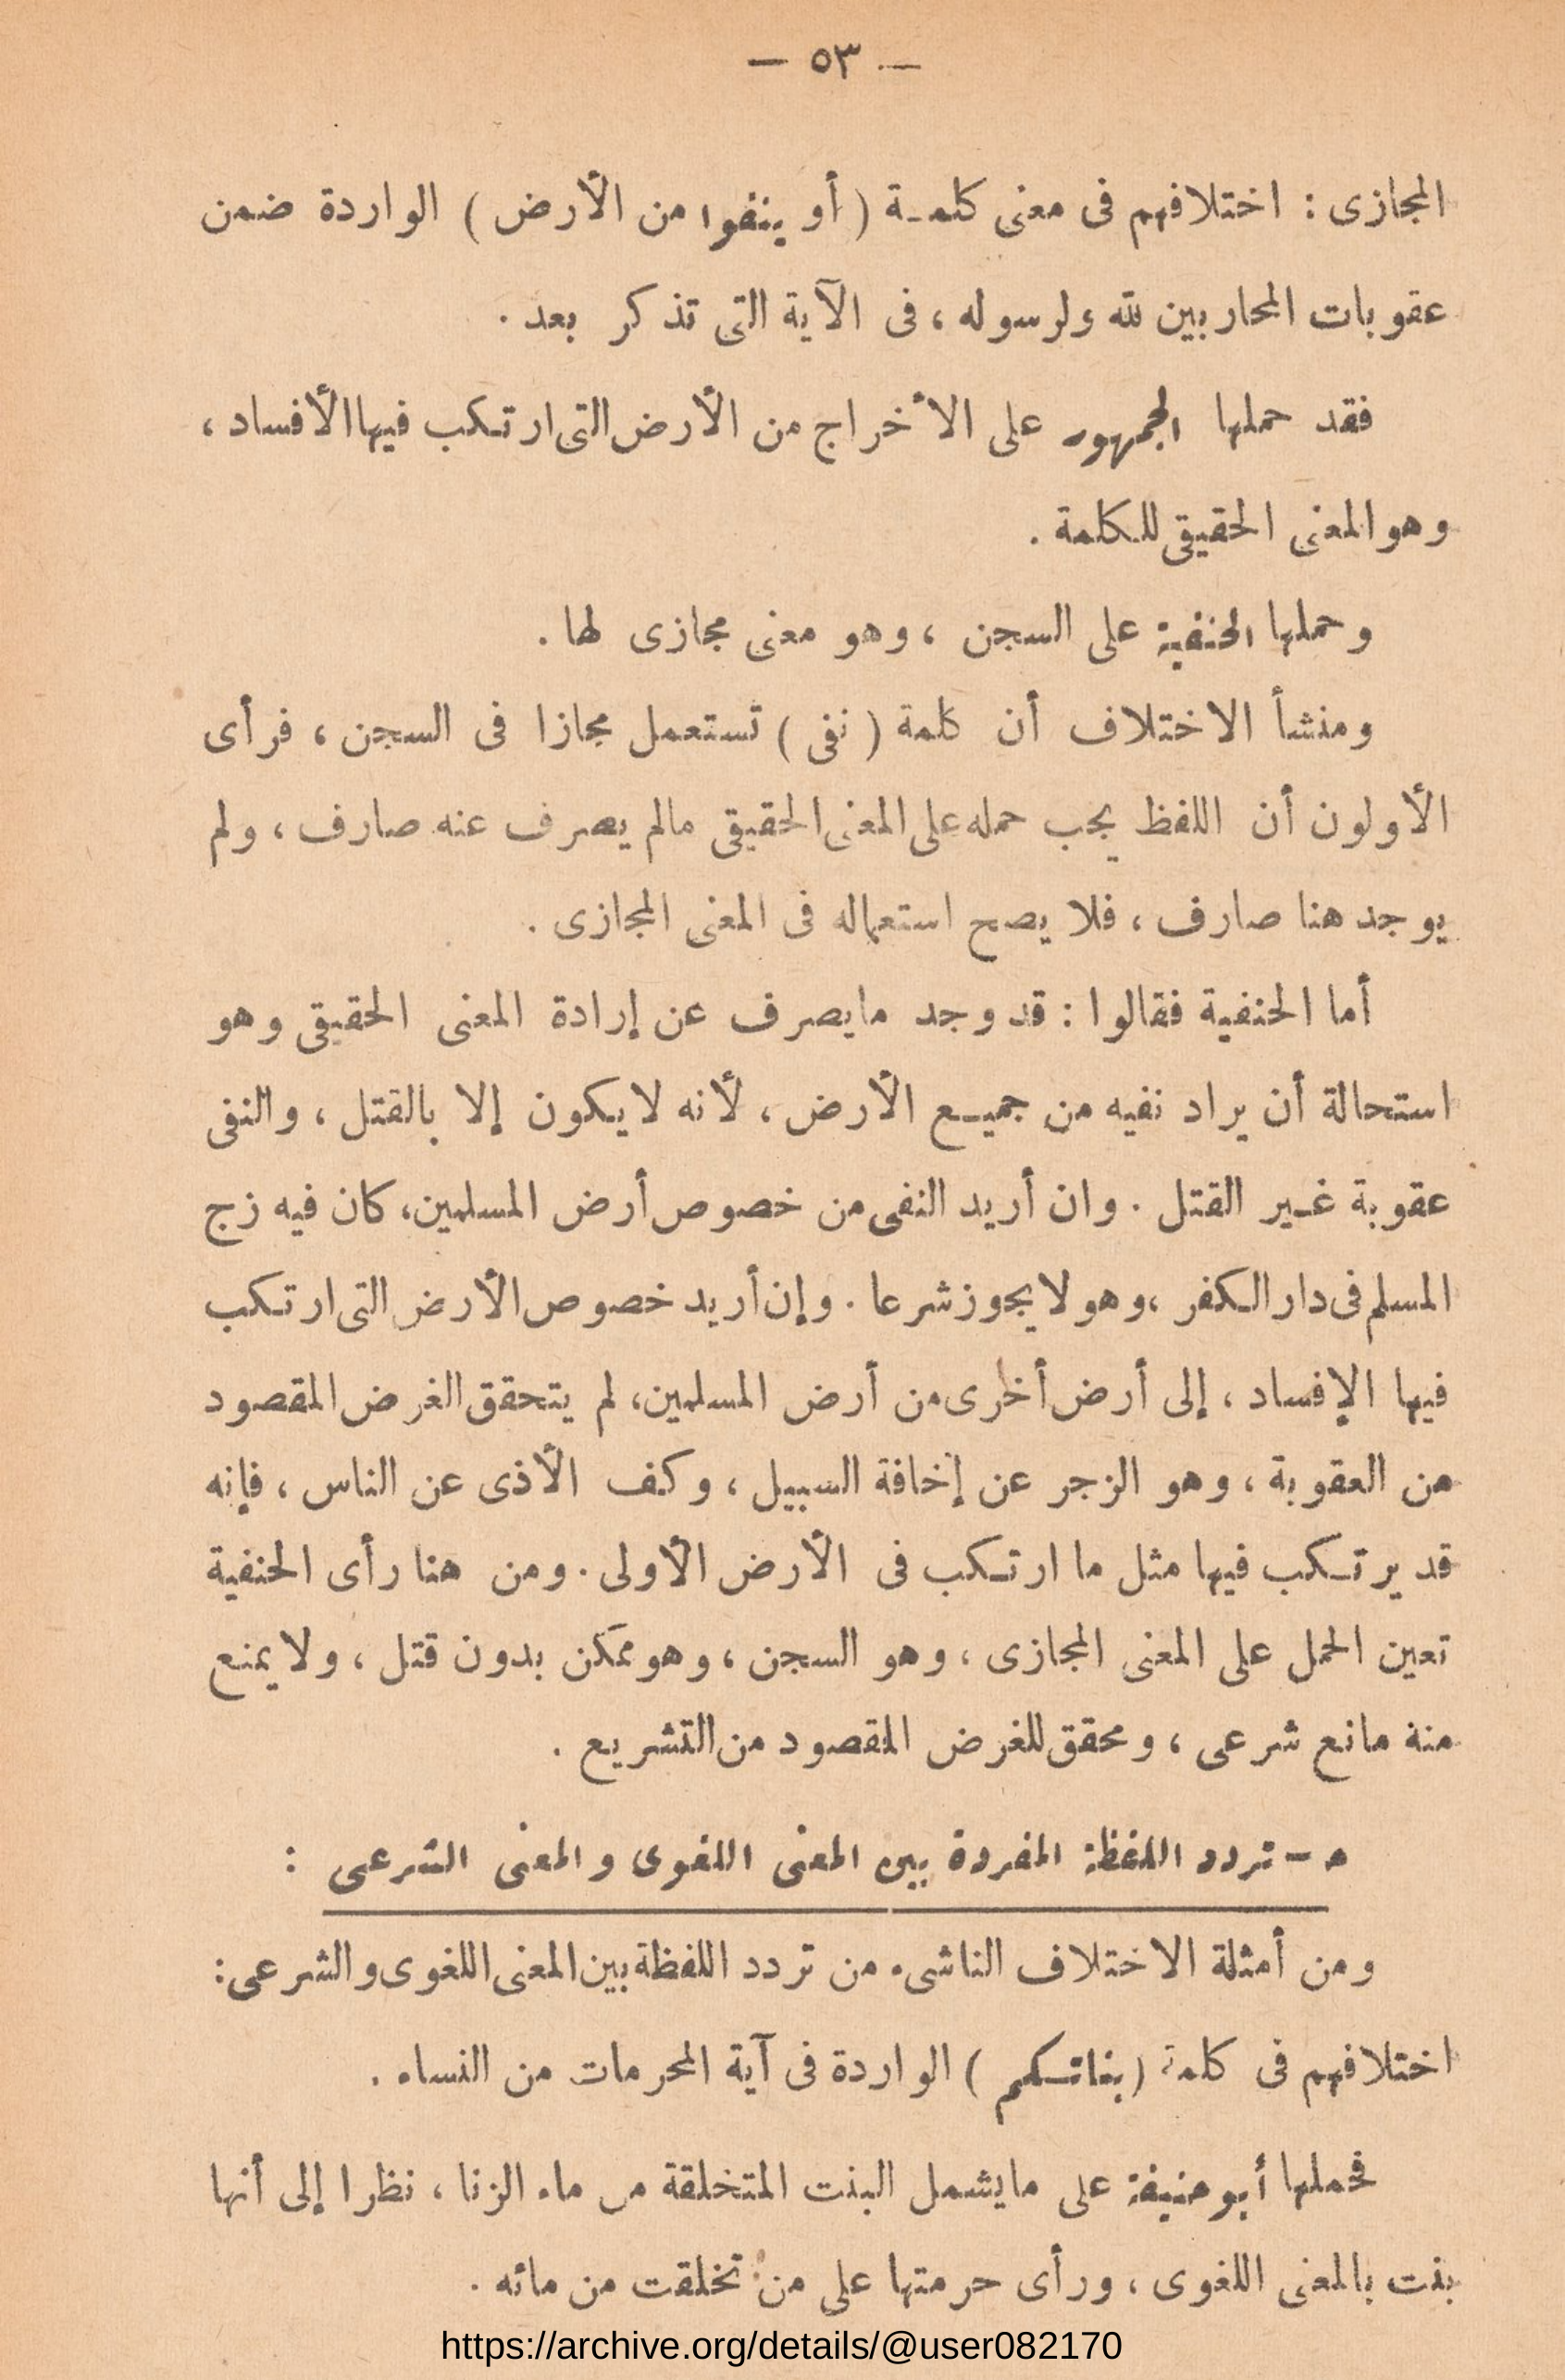 — ٥٣ —
المجازى : اختلافهم فى معنى كلمـة ( أو ينفوا من الأرض ) الواردة ضمن
عقوبات المحاربين لله ولرسوله ، فى الآية التى تذكر بعد .
فقد حملها الجمهور على الأخراج من الأرض التى ارتكب فيها الأفساد ،
وهو المعنى الحقيقى للكلمة .
وحملها الحنفية على السجن ، وهو معنى مجازى لها .
ومنشأ الاختلاف أن كلمة ( نفى ) تستعمل مجازا فى السجن ، فرأى
الأولون أن اللفظ يجب حمله على المعنى الحقيقى مالم يصرف عنه صارف ، ولم
يوجد هنا صارف ، فلا يصح استعماله فى المعنى المجازى .
أما الحنفية فقالوا : قد وجد مايصرف عن إرادة المعنى الحقيقى وهو
استحالة أن يراد نفيه من جميـع الأرض ، لأنه لا يكون إلا بالقتل ، والنفى
عقوبة غـير القتل . وان أريد النفى من خصوص أرض المسلمين، كان فيه زج
المسلم فى دار الكفر ، وهو لا يجوز شرعا . وإن أريد خصوص الأرض التى ارتكب
فيها الإفساد ، إلى أرض أخرى من أرض المسلمين، لم يتحقق الغرض المقصود
من العقوبة ، وهو الزجر عن إخافة السبيل ، وكف الأذى عن الناس ، فإنه
قد يرتكب فيها مثل ما ارتكب فى الأرض الأولى . ومن هنا رأى الحنفية
تعين الحمل على المعنى المجازى ، وهو السجن ، وهو ممكن بدون قتل ، ولا يمنع
منه مانع شرعى ، ومحقق للغرض المقصود من التشريع .
ـ تردد اللفظة المفردة بين المعنى اللغوى والمعنى الشرعى :
ومن أمثلة الاختلاف الناشىء من تردد اللفظة بين المعنى اللغوى والشرعى :
اختلافهم فى كلمة ( بناتكم ) الواردة فى آية المحرمات من النساء .
فحملها أبو حنيفة على مايشمل البنت المتخلقة من ماء الزنا ، نظرا إلى أنها
بنت بالمعنى اللغوى ، ورأى حرمتها على من تخلقت من مائه .
https://archive.org/details/@user082170